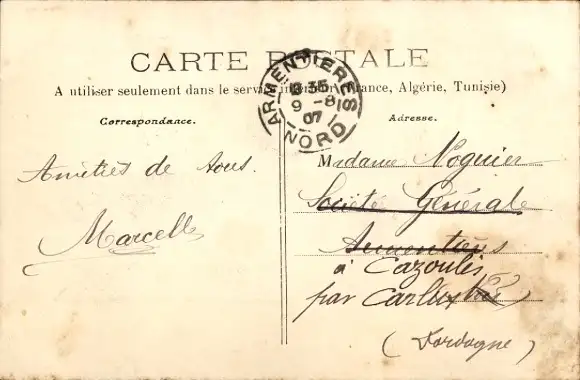 CARTE POSTALE
A utiliser seulement dans le service intérieur (France, Algérie, Tunisie)
ARMENTIERES
35
9 -8
07
NORD
Correspondance.
Adresse.
Amitiés de tous.
Marcelle
Madame Noguier
Société Générale
Armentières
à Cazoulès
par Carlux
(Dordogne)